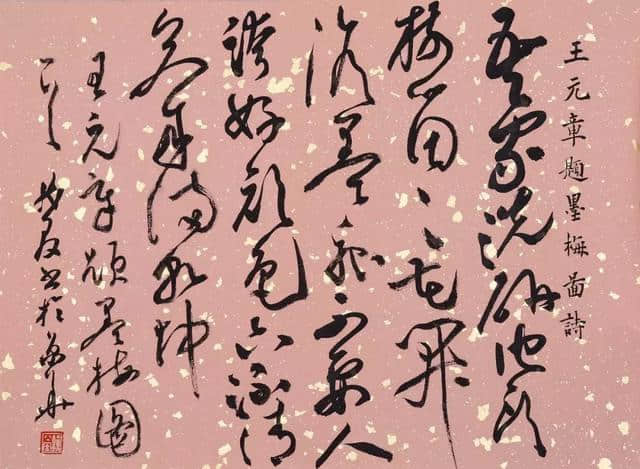 王元章題墨梅啚詩
吾家洗硯池頭
樹箇〻花開
淡墨痕不要人
誇好顏色只流清
氣滿乾坤
王元章題墨梅圖
書於京華